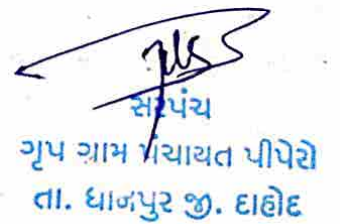 સરપંચ
ગૃપ ગ્રામ પંચાયત પીપેરો
તા. ધાનપુર જી. દાહોદ